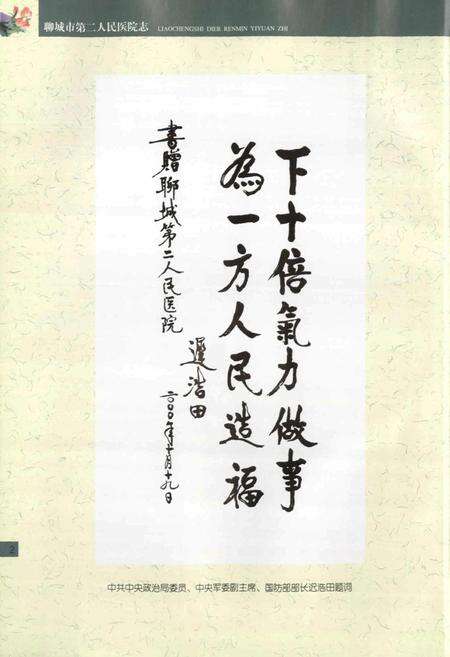 聊城市第二人民医院志 LIAOCHENGSHI DIER RENMIN YIYUAN ZHI
下十倍氣力做事
為一方人民造福
書贈聊城第二人民医院
遲浩田
二〇〇〇年十月十九日
2
中共中央政治局委员、中央军委副主席、国防部部长迟浩田题词